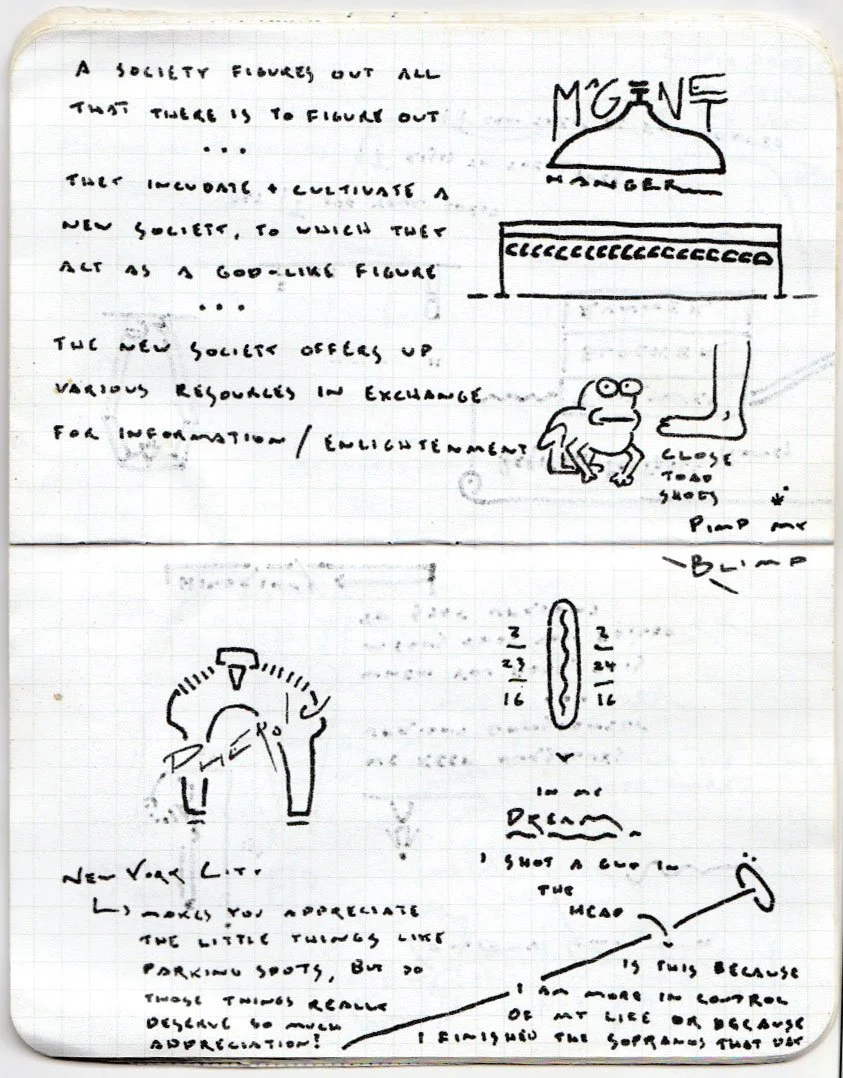 A SOCIETY FIGURES OUT ALL
THAT THERE IS TO FIGURE OUT
...
THEY INCUDATE + CULTIVATE A
NEW SOCIETY, TO WHICH THEY
ACT AS A GOD-LIKE FIGURE
...
THE NEW SOCIETY OFFERS UP
VARIOUS RESOURCES IN EXCHANGE
FOR INFORMATION / ENLIGHTENMENT
MAGINET
HANGER
CLOSE
TOAD
SHOES
PIMP MY
BLIMP
NEW YORK CITY
↳ MAKES YOU APPRECIATE
THE LITTLE THINGS LIKE
PARKING SPOTS, BUT DO
THOSE THINGS REALLY
DESERVE SO MUCH
APPRECIATION!
2 2
23 24
16 16
IN MY
DREAM
I SHOT A GUY IN
THE
HEAD
IS THIS BECAUSE
I AM MORE IN CONTROL
OF MY LIFE OR BECAUSE
I FINISHED THE SOPRANOS THAT DAY